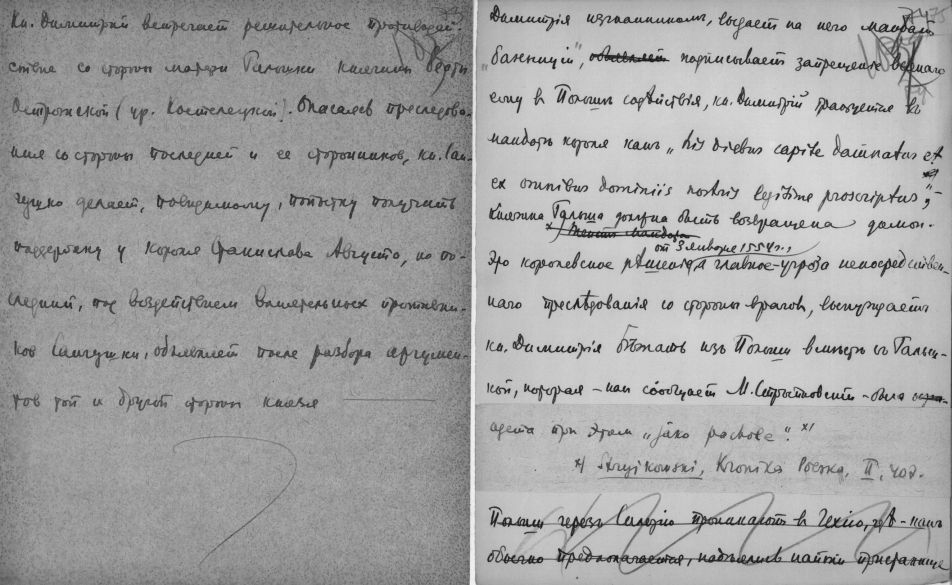 Кн. Димитрий встречает решительное противодей-
ствие со стороны матери Гальшки княгини Беаты
Острожской (ур. Костелецкой). Опасаясь преследова-
ния со стороны последней и ее сторонников, кн. Сан-
гушко делает, повидимому, попытку получить
поддержку у короля Станислава Августа, но по-
следний, под воздействием влиятельных противни-
ков Сангушки, объявляет после разбора аргумен-
тов той и другой стороны князя
Димитрія изгнанником, выдает на него мандат
"банниций", объявляет подписывает запрещение всякаго
ему в Польшѣ содѣйствія, кн. Димитрій трактуется в
мандатѣ короля как "his diebus capite damnatus et
ex omnibus dominiis nostris legitime proscriptus", x)
Княжна Гальша должна быть возвращена домой.
x)
от 3 января 1554 г.,
Это королевское рѣшенія, а главное - угроза непосредствен-
наго преслѣдованія со стороны врагов, вынуждает
кн. Димитрія бѣжать из Польши вмѣстѣ съ Гальш-
кой, которая - как сообщает М. Стрыковский - была
одета при этом "jako pachole". x)
x) Stryikowski, Kronika Polska, II, 402.
Польши через Силезію проникают в Чехію, гдѣ - как
обычно предполагается, надѣялись найти пристанище